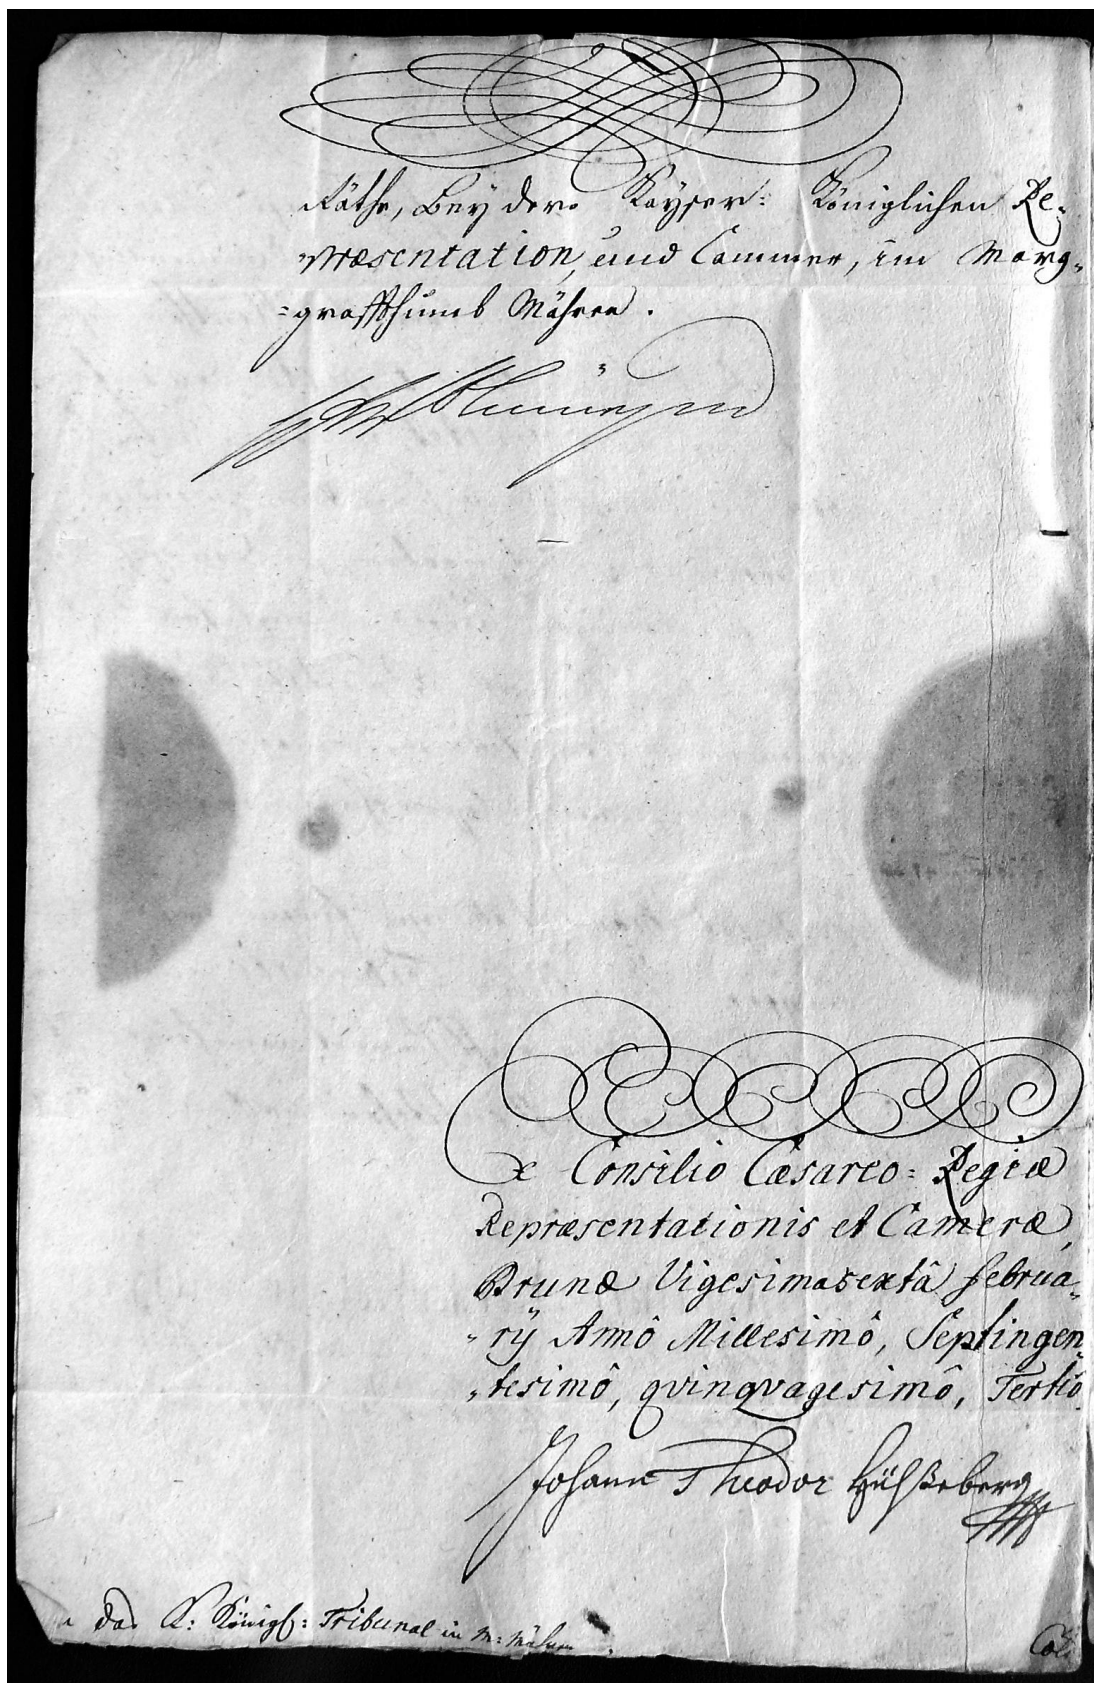 Räthe, Bey der Kayser: Königlichen Re-
præsentation, und Cammer, im Marg-
=graffthumb Mähren.
Blümegen
Ex Consilio Cæsareo= Regiæ
Repræsentationis et Cameræ,
Brunæ Vigesimasextâ Februa-
-rÿ Annô Millesimô, Septingen-
-tesimô, qvinqvagesimô, Tertiô.
Johann Theodor Hülßeberg
das K: Königl: Tribunal in M: Mähren